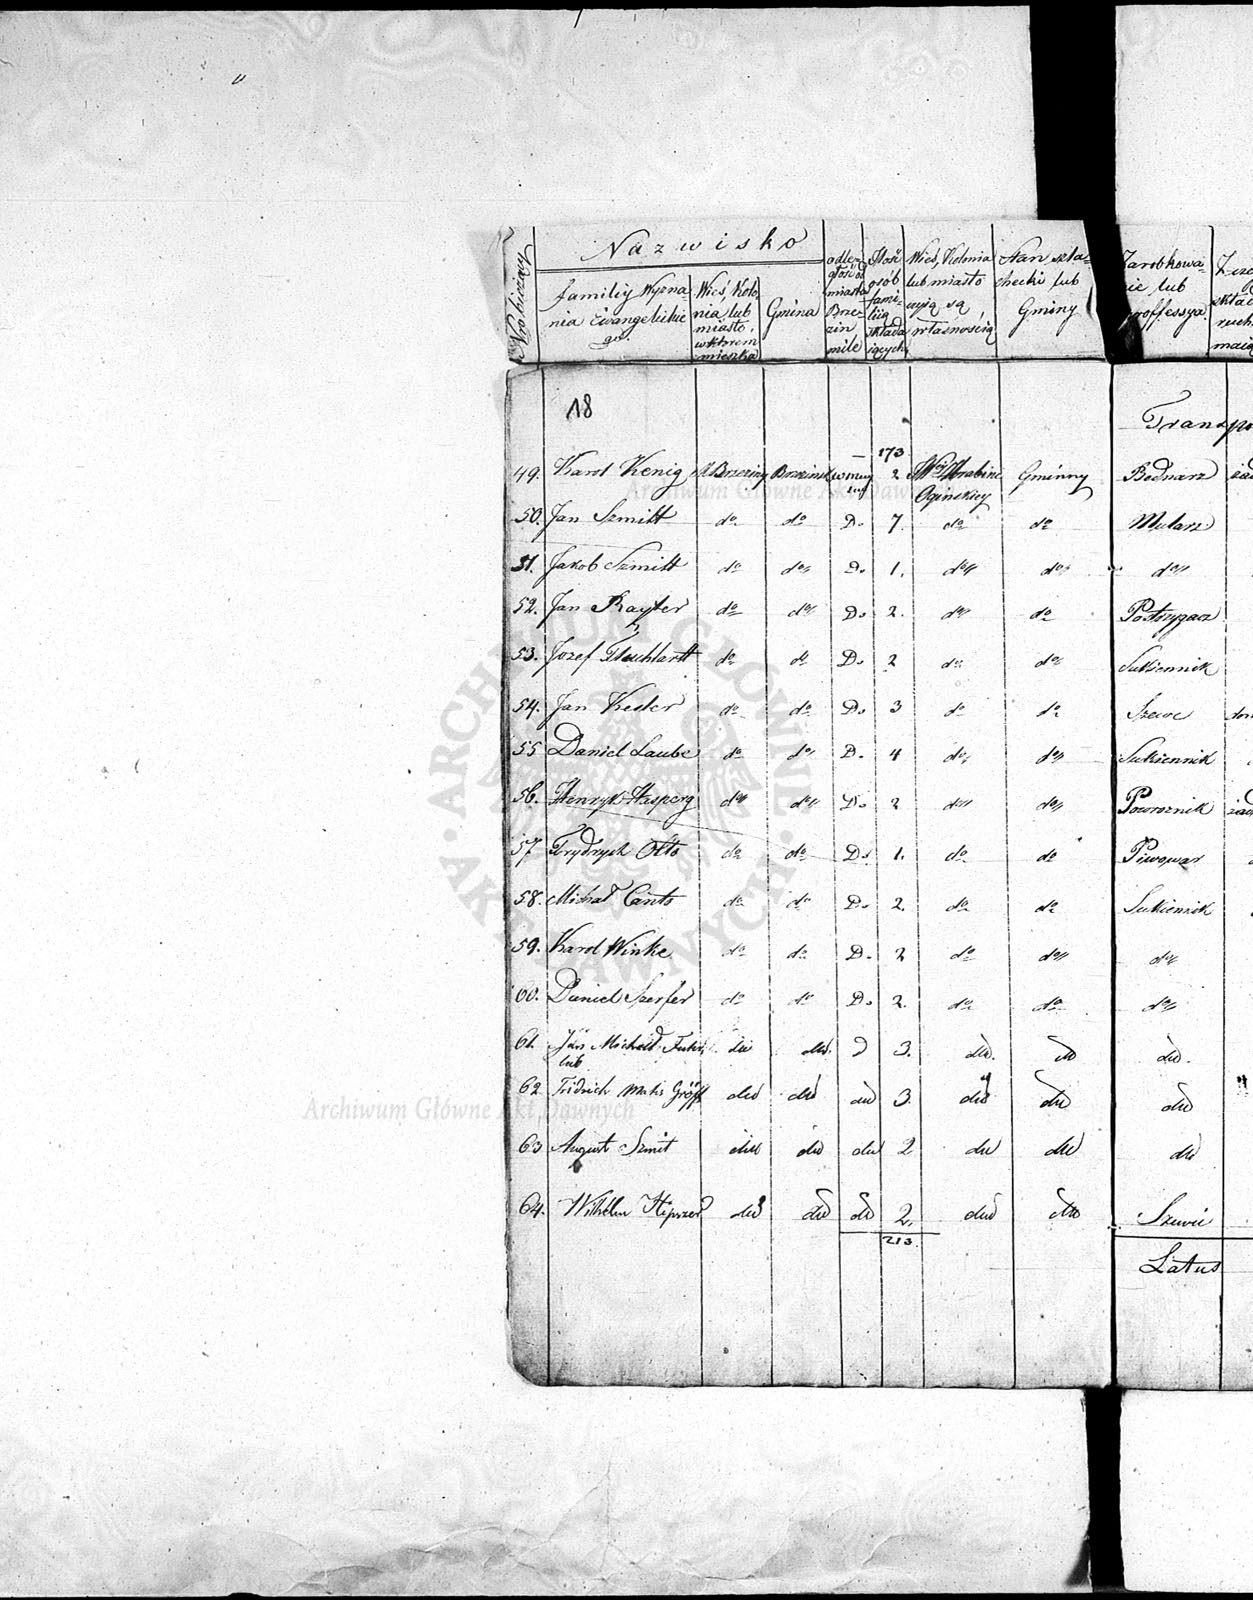 Nro bieżący
Nazwisko
familiy Wyzna-
nia Ewangelickie
go.
Wieś, Kolo,
nia, lub
miasto,
w którem
mieszka
Gmina
odle-
głość od
miasta
Brze-
zin
mile
Ilość
osób
fami-
lią
składa
iących
Wieś, Kolonia
lub miasto
czyją są
własnością
Stan szla-
checki lub
Gminy
Zarobkowa-
nie, lub
proffessya
18
Transpo
173
49. Karol Kenig M. Brzeziny Brzezinsk 2 Hrabine Gminny Bednarz
Oginskiey
50. Jan Szmitt do do D. 7. do do Mularz
51. Jakob Szmitt do do D. 1. do do do
52. Jan Rayter do do D. 2. do do Postrzygacz
53. Jozef do do D. 2 do do Sukiennik
54. Jan Kesler do do D. 3 do do Szewc
55 Daniel Laube do do D. 4 do do Sukiennik
56. Henryk Hesperg do do D. 2 do do Powroznik
57 Frydrych Otto do do D. 1. do do Piwowar
58. Michał Canto do do D. 2. do do Sukiennik
59. Karol Winke do do D. 2 do do do
60. Daniel Szerfer do do D. 2. do do do
61. Jan Michael dto dto D 3. dto dto dto
lub
62 Fridrich Matis Gröff dto dto dto 3. dto dto dto
63 August Szmit dto dto dto 2 dto dto dto
64. Wilhelm dto dto dto 2. dto dto Szewc
213.
Latus
Archiwum Główne Akt Dawnych
ARCHIWUM GŁÓWNE · AKT DAWNYCH ·
Archiwum Główne Akt Dawnych